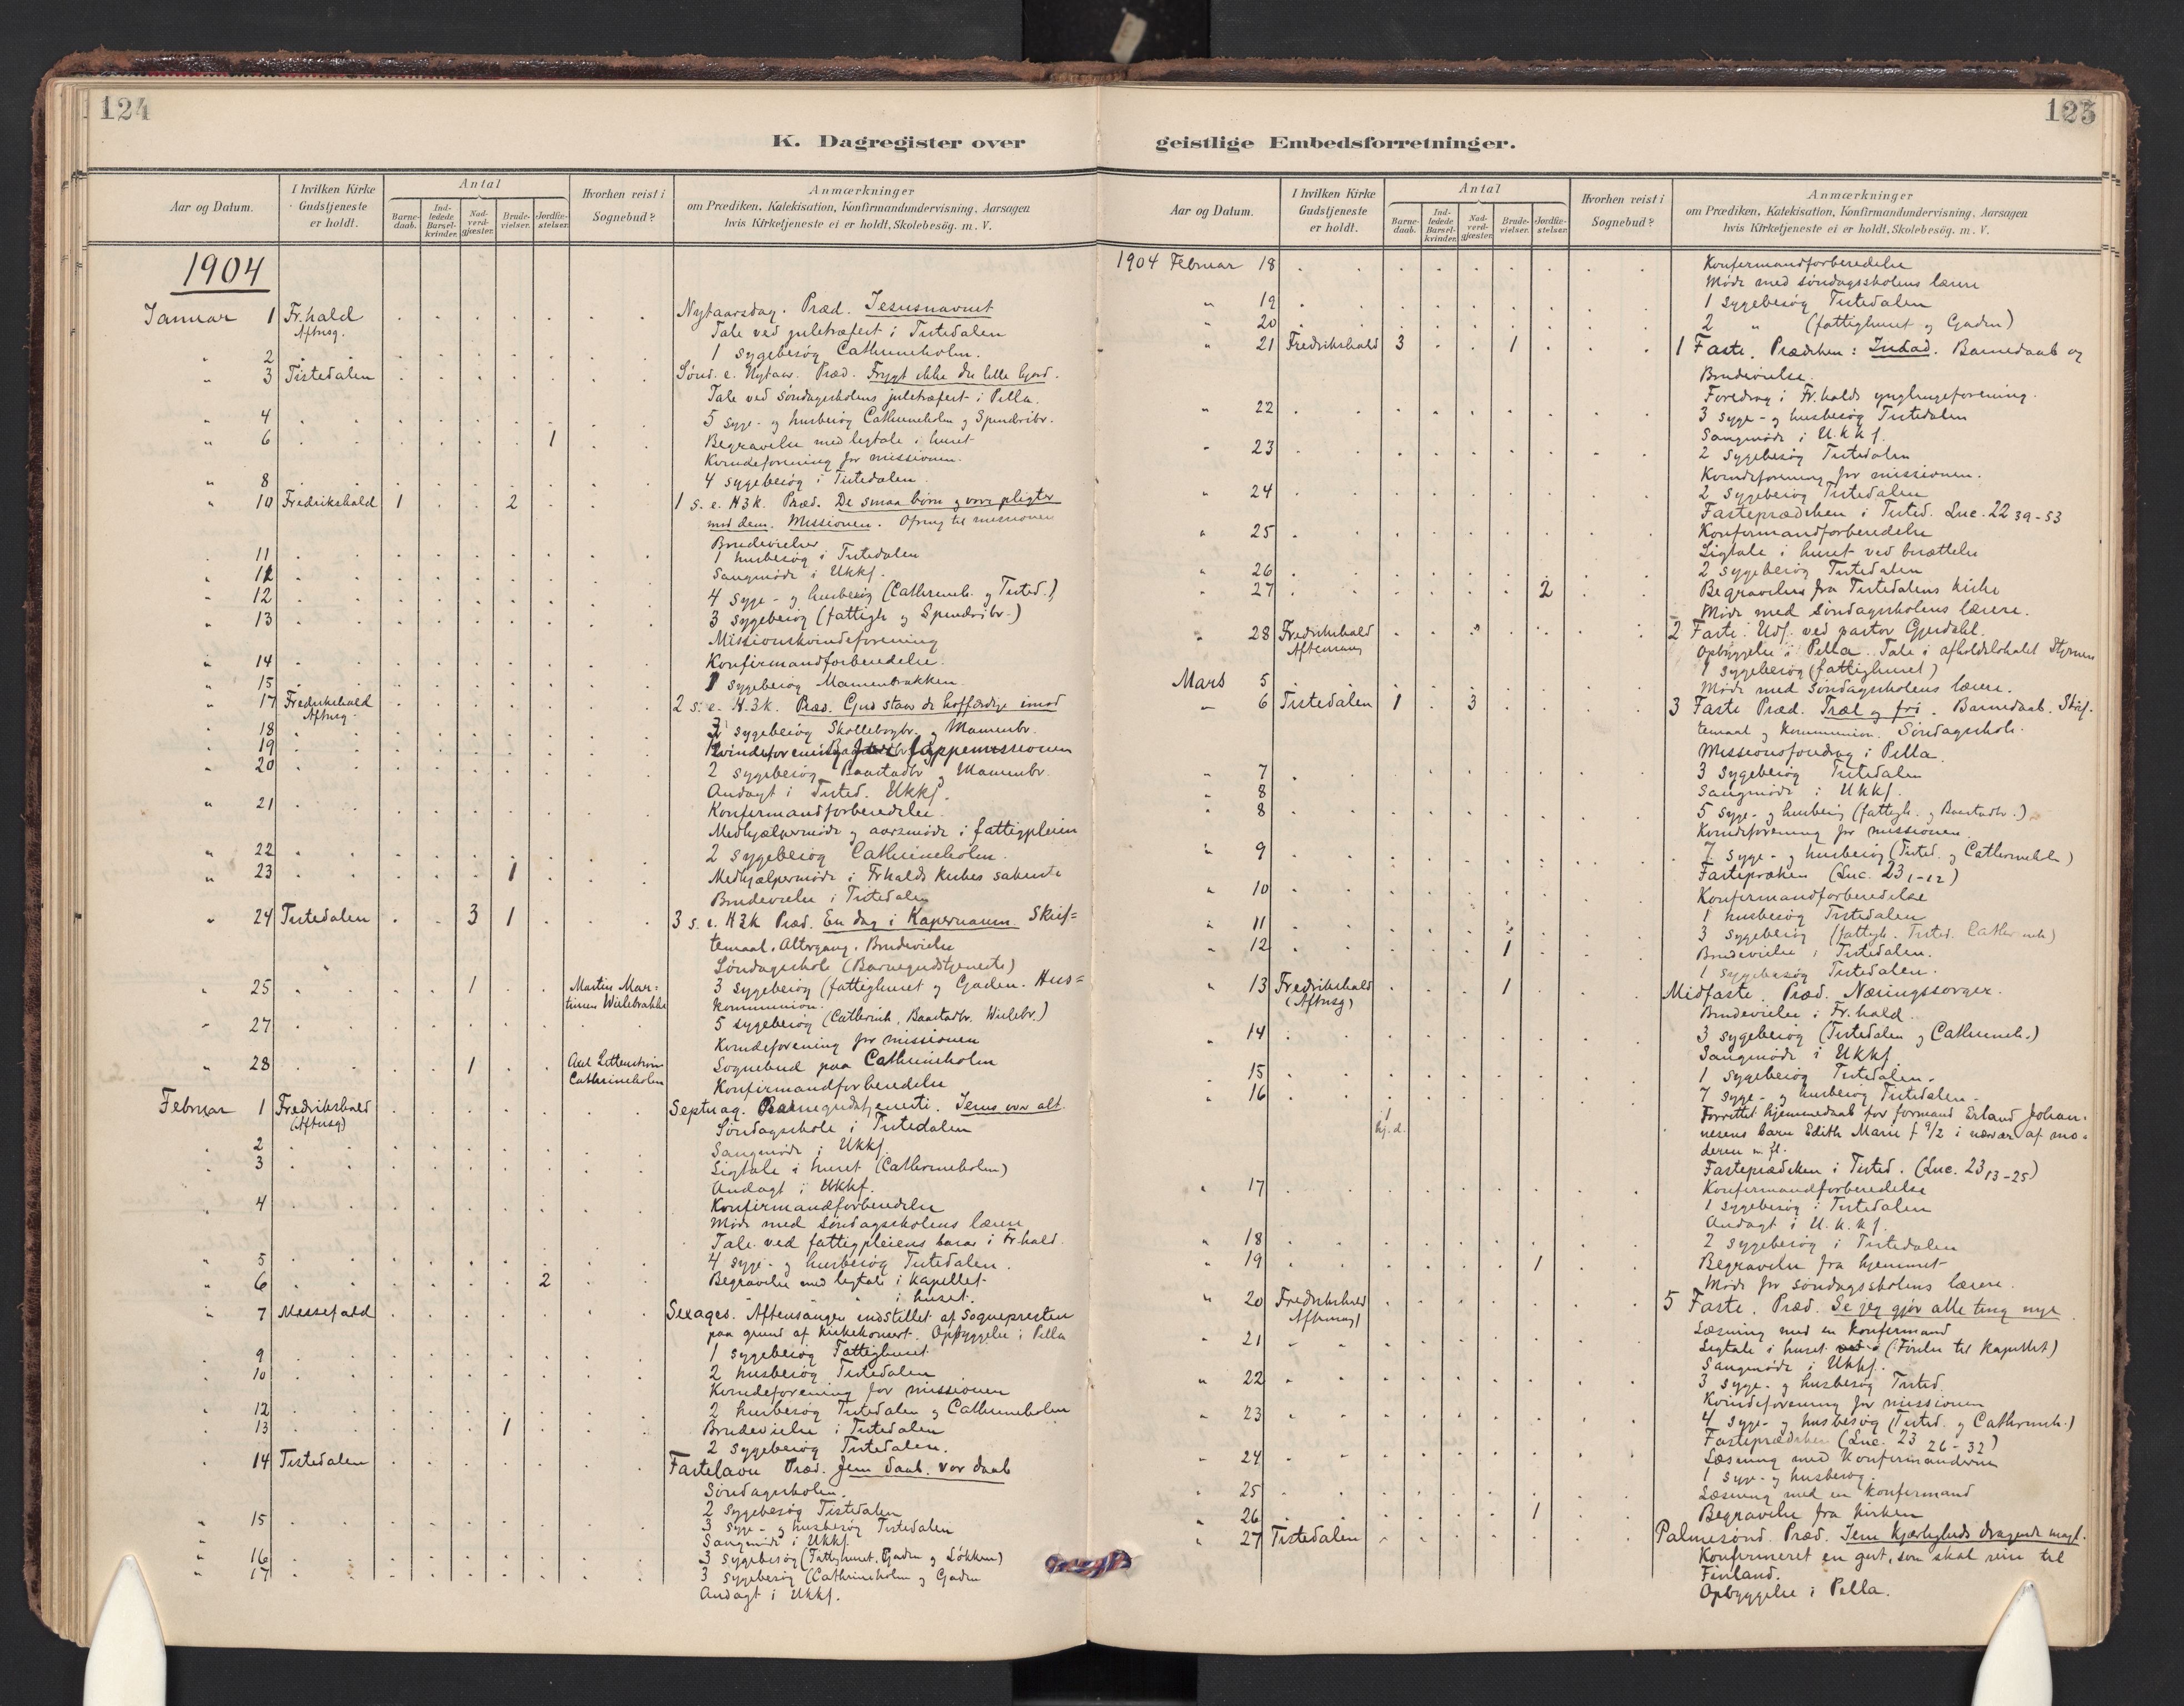 124
K. Dagregister over
Aar og Datum.
I hvilken Kirke Gudstjeneste er holdt.
Antal
Barne-daab.
Ind-ledede Barsel-kvinder.
Nad-verd-gjæster.
Brude-vielser.
Jordfæ-stelser.
Hvorhen reist i Sognebud?
Anmærkninger
om Prædiken, Katekisation, Konfirmandundervisning, Aarsagen
hvis Kirketjeneste ei er holdt, Skolebesög. m. V.
1904
Januar 1 Fr.hald Aftnsg. Nytaarsdag. Præd. Jesusnavnet
Tale ved juletræfest i Tistedalen
" 2 1 sygebesøg Cathrineholm.
" 3 Tistedalen Sønd. e. Nytaar. Præd. Frygt ikke du lille hjord.
Tale ved søndagsskolens juletræfest i Pella.
" 4 5 syge- og husbesøg Cathrineholm og
" 6 1 Begravelse med ligtale i huset
Kvindeforening for missionen.
" 8 4 sygebesøg i Tistedalen.
" 10 Fredrikshald 1 2 1 s. e. H3k. Præd. De smaa børn og vore pligter
mod dem. Missionen. Ofring til missionen
Brudevielser
" 11 1 husbesøg i Tistedalen
" 12 Sangmøde i Ukkf.
" 12 4 syge- og husbesøg (Cathrineh. og Tisted.)
" 13 3 sygebesøg (fattigh. og
Missionskvindeforening
" 14 Konfirmandforberedelse.
" 15 1 sygebesøg Mamenbrakken
" 17 Fredrikshald Aftnsg. 2 s. e. H.3k. Præd. Gud staar de hoffærdige imod
" 18 2 sygebesøg og Mamenbr.
" 19 Kvindeforening for lappemissionen
" 20 2 sygebesøg Baastadbr. og Mamenbr.
Andagt i Tisted. Ukkf.
" 21 Konfirmandforberedelse.
Medhjælpermøde og aarsmøde i fattigpleien
" 22 2 sygebesøg Cathrineholm.
" 23 1 Medhjælpermøde i Frhalds kirkes sakristi
Brudevielse i Tistedalen
" 24 Tistedalen 3 1 3 s. e. H3k Præd. En dag i Kapernaum. Skrif=
temaal. Altergang. Brudevielse
" Søndagsskole (Barnegudstjeneste)
" 25 1 Martin Mar= 3 sygebesøg (fattighuset og Gaden. Hus=
tinsen Wielebrakke kommunion.
" 27 5 sygebesøg (Cathrineh, Baastadbr. Wielebr.)
Kvindeforening for missionen
" 28 1 Axel Cathrineholm Sognebud paa Cathrineholm
Konfirmandforberedelse
Februar 1 Fredrikshald (Aftnsg) Septuag. Barnegudstjeneste. Jesus over alt.
Søndagsskole i Tistedalen
" 2 Sangmøde i Ukkf.
" 3 Ligtale i huset (Cathrineholm)
Andagt i Ukkf.
" 4 Konfirmandforberedelse
Møde med søndagsskolens lærere
Tale ved fattigpleiens basar i Fr.hald.
" 5 4 syge- og husbesøg Tistedalen.
" 6 2 Begravelse med ligtale i kapellet
" " " i huset.
" 7 Messefald Sexages. Aftensangen indstillet af Sognepresten
paa grund af kirkekonsert. Opbyggelse i Pella
" 9 1 sygebesøg Fattighuset
" 10 2 husbesøg Tistedalen
Kvindeforening for missionen
" 12 2 husbesøg Tistedalen og Cathrineholm
" 13 1 Brudevielse i Tistedalen
2 sygebesøg Tistedalen.
" 14 Tistedalen Fastelavn Præd. Jesu daab. vor daab
Søndagsskolen.
2 sygebesøg Tistedalen
" 15 3 syge- og husbesøg Tistedalen
Sangmøde i Ukkf.
" 16 3 sygebesøg (Fattighuset, Gaden og Løkken)
" 17 3 sygebesøg (Cathrineholm og Gaden
Andagt i Ukkf.
125
geistlige Embedsforretninger.
Aar og Datum.
I hvilken Kirke Gudstjeneste er holdt.
Antal
Barne-daab.
Ind-ledede Barsel-kvinder.
Nad-verd-gjæster.
Brude-vielser.
Jordfæ-stelser.
Hvorhen reist i Sognebud?
Anmærkninger
om Prædiken, Katekisation, Konfirmandundervisning, Aarsagen
hvis Kirketjeneste ei er holdt, Skolebesög. m. V.
1904 Februar 18 Konfirmandforberedelse
Møde med søndagsskolens lærere
" 19 1 sygebesøg Tistedalen
" 20 2 " (fattighuset og Gaden)
" 21 Fredrikshald 3 1 1 Faste. Prædiken: Barnedaab og
Brudevielse.
Foredrag i Fr.halds ynglingeforening.
" 22 3 syge- og husbesøg Tistedalen
Sangmøde i U.k.k.f.
" 23 2 sygebesøg Tistedalen
Kvindeforening for missionen.
" 24 2 sygebesøg Tistedalen
Fasteprædiken i Tisted. Luc. 22 39-53
" 25 Konfirmandforberedelse
Ligtale i huset ved bisættelse
" 26 2 sygebesøg Tistedalen
" 27 2 Begravelser fra Tistedalens kirke
Møde med søndagsskolens lærere.
" 28 Fredrikshald Aftensang 2 Faste. Udf. ved pastor Gjerdahl.
Opbyggelse i Pella. Tale i afholdslokalet
1 sygebesøg (fattighuset)
Mars 5 Møde med søndagsskolens lærere.
" 6 Tistedalen 1 3 3 Faste Præd. Træl og fri. Barnedaab. Skrif-
temaal og Kommunion. Søndagsskole.
Missionsforedrag i Pella.
" 7 3 sygebesøg Tistedalen
" 8 Sangmøde i Ukkf.
" 8 5 syge- og husbesøg (fattigh. og Baastadbr.)
Kvindeforening for missionen.
" 9 7 syge- og husbesøg (Tisted. og Cathrineholm)
Fasteprøken (Luc. 23 1-12)
" 10 Konfirmandforberedelse
1 husbesøg Tistedalen
" 11 3 sygebesøg (fattigh. Tisted. Cathrineh)
" 12 1 Brudevielse i Tistedalen.
1 sygebesøg Tistedalen.
" 13 Fredrikshald (Aftnsg) 1 Midfaste. Præd. Næringssorger.
Brudevielse i Fr.hald.
" 14 3 sygebesøg (Tistedalen og Cathrineh.)
Sangmøde i Ukkf.
" 15 1 sygebesøg Tistedalen.
" 16 7 syge- og husbesøg Tistedalen.
1 hj.d. Forrettet hjemmedaab for formand Erland Johan-
nesens barn Edith Marie f 9/2 i nærvær af mo-
deren m.fl.
Fasteprædiken i Tisted. (Luc. 23 13-25)
" 17 Konfirmandforberedelse
1 sygebesøg i Tistedalen
Andagt i U.k.k.f.
" 18 2 sygebesøg i Tistedalen
" 19 1 Begravelse fra hjemmet
Møde for søndagsskolens lærere.
" 20 Fredrikshald Aftensang 5 Faste. Præd. Se jeg gjør alle ting nye.
Læsning med en konfirmand
" 21 Ligtale i huset (Førelse til kapellet)
Sangmøde i Ukkf.
" 22 3 syge- og husbesøg Tisted.
Kvindeforening for missionen
" 23 4 syge- og husbesøg (Tisted. og Cathrineh.)
Fasteprædiken (Luc. 23 26-32)
" 24 Læsning med Konfirmanderne
1 syge- og husbesøg.
" 25 Læsning med en konfirmand
" 26 1 Begravelse fra kirken
" 27 Tistedalen Palmesønd. Præd. Jesu kjærligheds dragende magt.
Konfirmeret en gut, som skal reise til
Finland.
Opbyggelse i Pella.